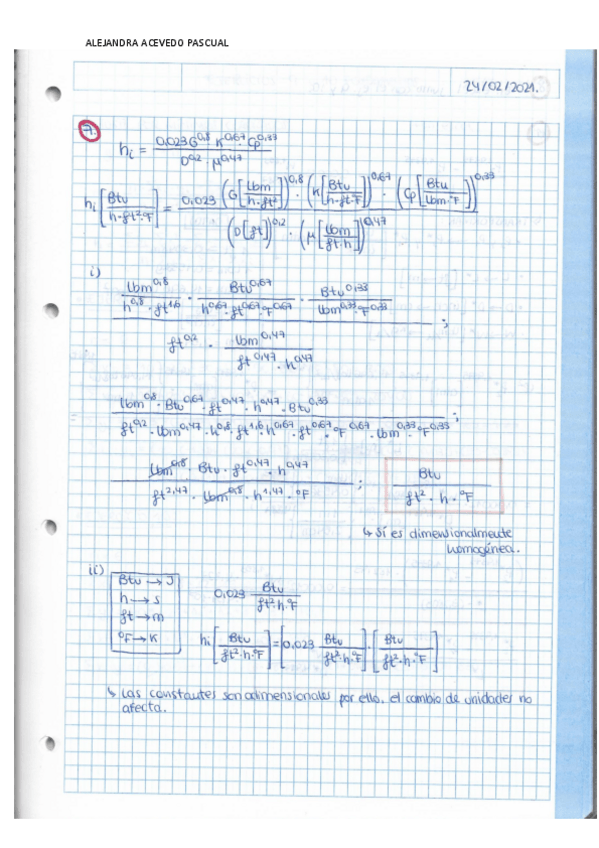 ALEJANDRA ACEVEDO PASCUAL
24/02/2021.
7.
hi = 0,023 G^0,8 · K^0,67 · Cp^0,33 / D^0,2 · μ^0,47
hi [Btu / h·ft²·ºF] = 0,023 (G [lbm / h·ft²])^0,8 · (K [Btu / h·ft·ºF])^0,67 · (Cp [Btu / lbm·ºF])^0,33 / (D [ft])^0,2 · (μ [lbm / ft·h])^0,47
i)
lbm^0,8 / h^0,8 · ft^1,6 · Btu^0,67 / h^0,67 · ft^0,67 · ºF^0,67 · Btu^0,33 / lbm^0,33 · ºF^0,33 ;
ft^0,2 · lbm^0,47 / ft^0,47 · h^0,47
= lbm^0,8 · Btu^0,67 · ft^0,47 · h^0,47 · Btu^0,33 / ft^0,2 · lbm^0,47 · h^0,8 · ft^1,6 · h^0,67 · ft^0,67 · ºF^0,67 · lbm^0,33 · ºF^0,33 ;
lbm^0,8 · Btu · ft^0,47 · h^0,47 / ft^2,47 · lbm^0,8 · h^1,47 · ºF ; Btu / ft² · h · ºF
↳ Sí es dimensionalmente
homogénea.
ii)
Btu → J
h → s
ft → m
ºF → K
0,023 Btu / ft²·h·ºF
hi [Btu / ft²·h·ºF] = [0,023 Btu / ft²·h·ºF] · [Btu / ft²·h·ºF]
↳ Las constantes son adimensionales por ello, el cambio de unidades no
afecta.